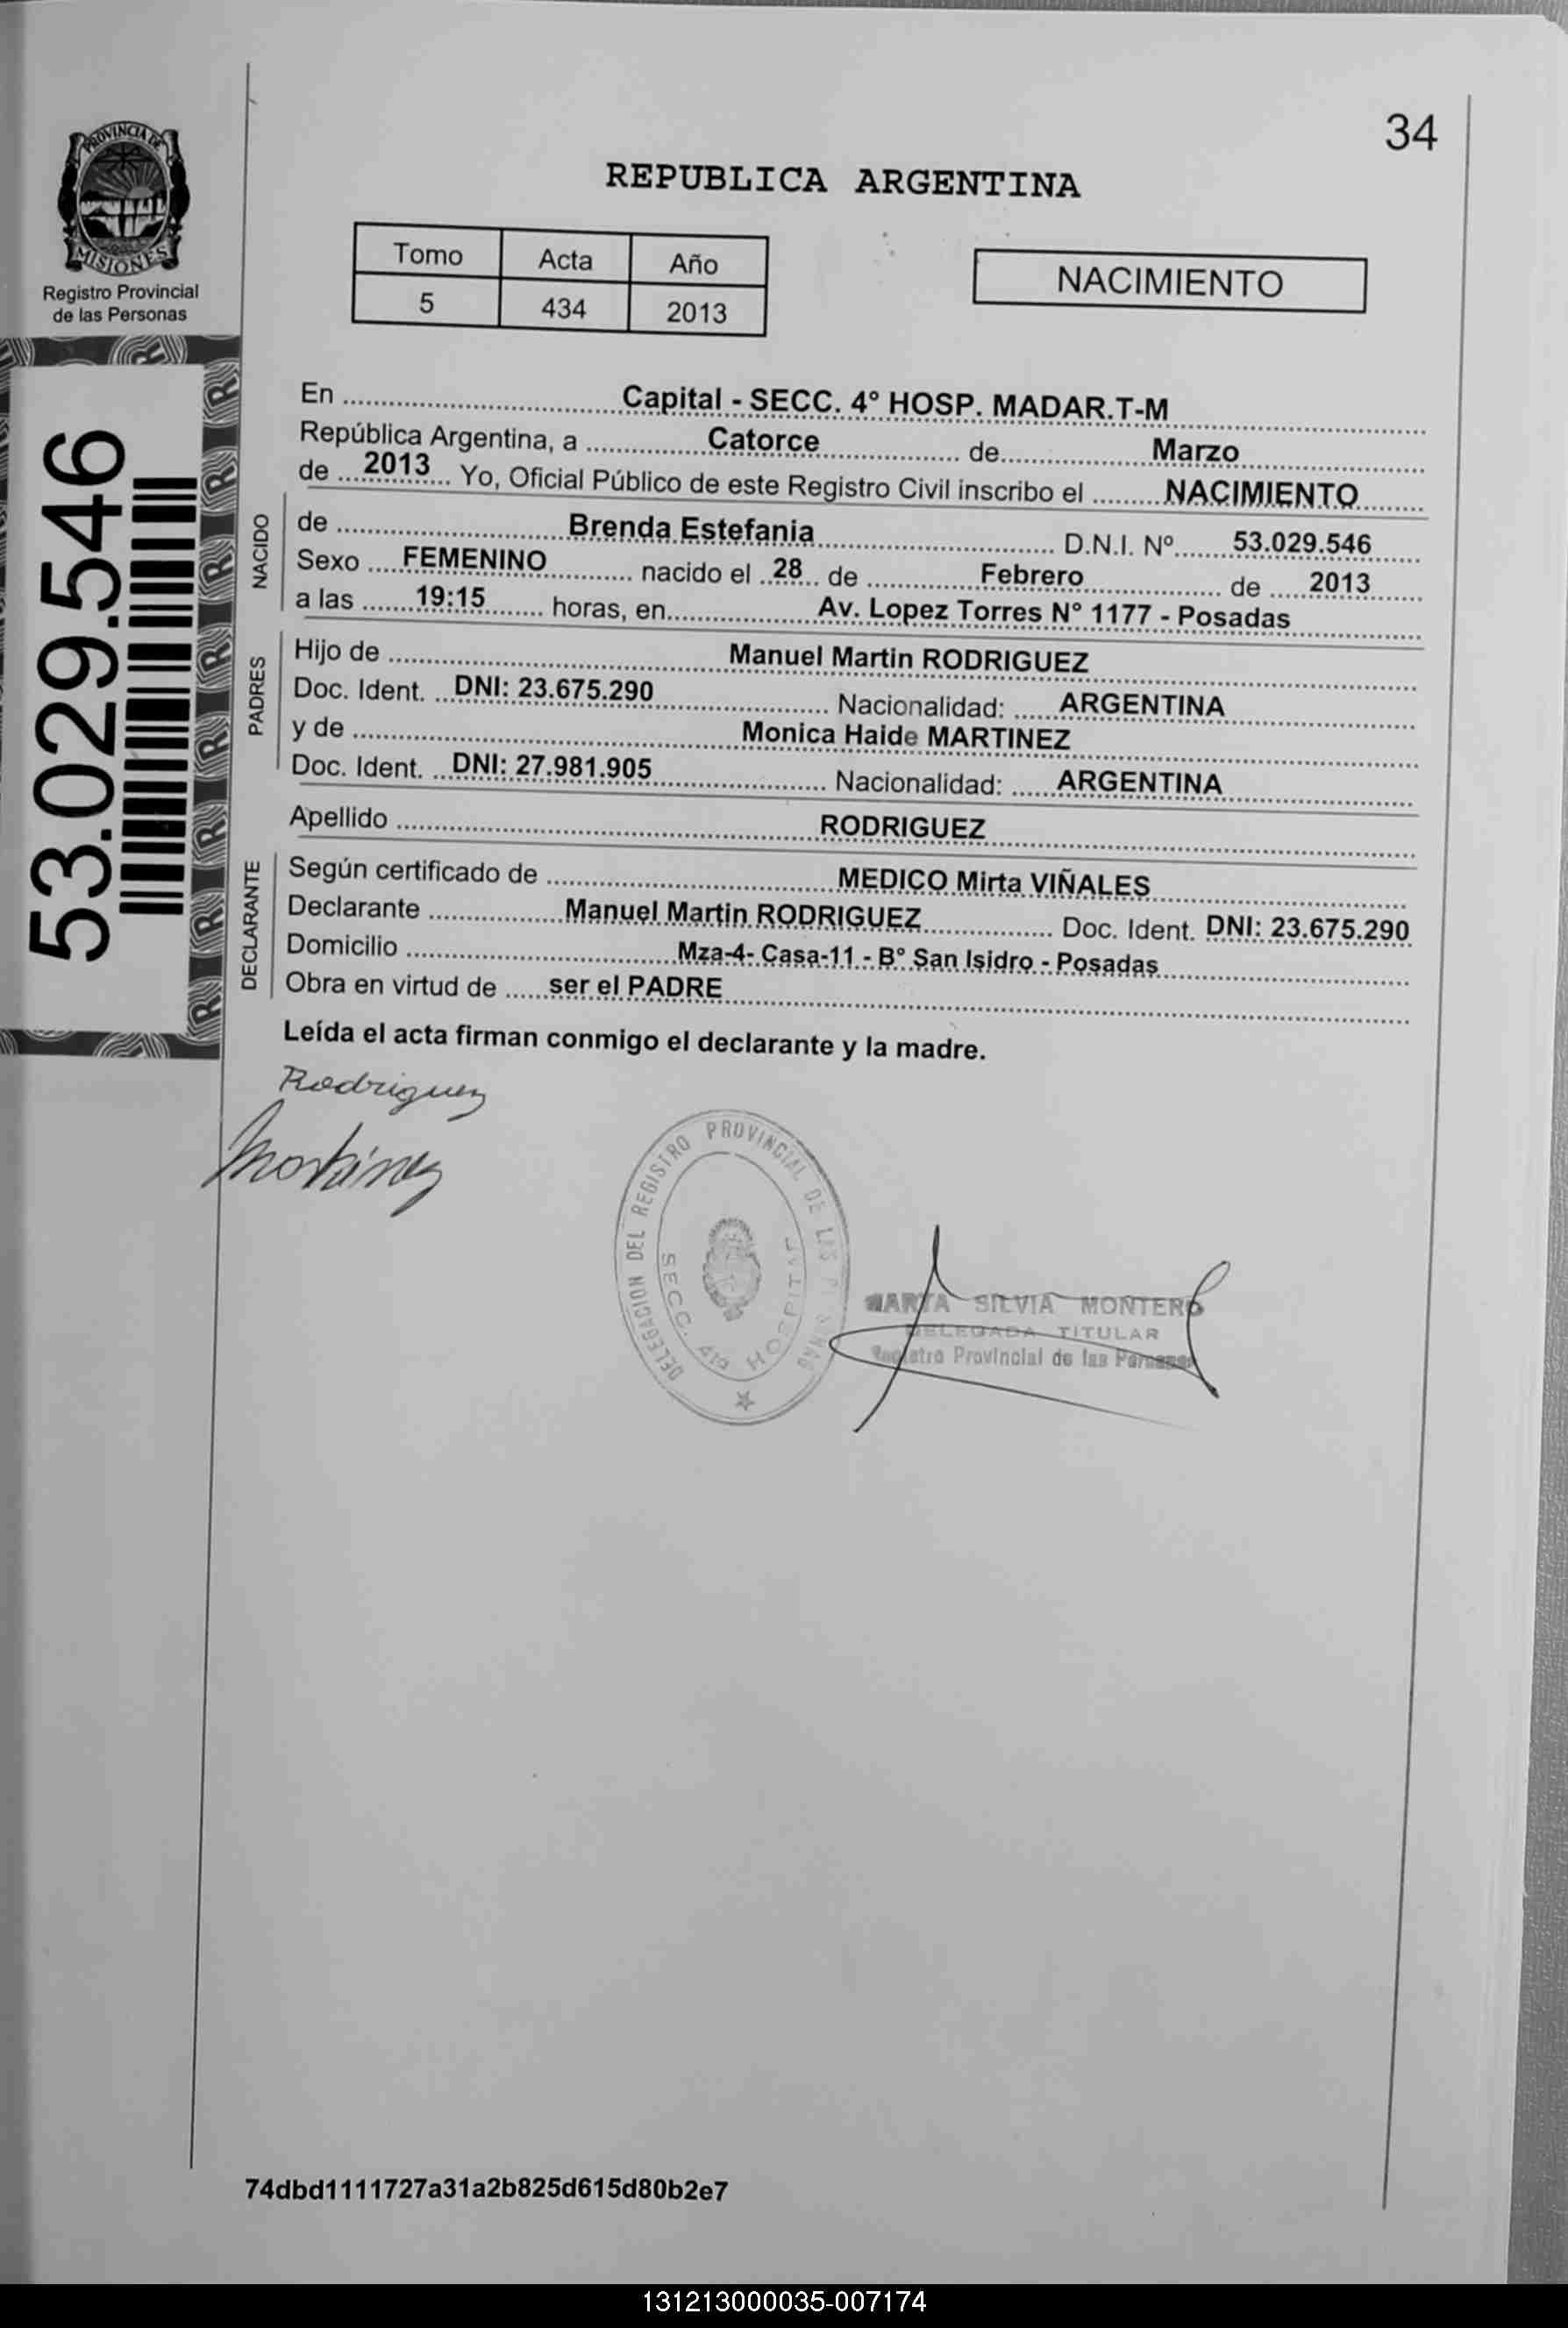 34
PROVINCIA DE
MISIONES
Registro Provincial
de las Personas
REPUBLICA ARGENTINA
Tomo Acta Año
5 434 2013
NACIMIENTO
53.029.546
En Capital - SECC. 4° HOSP. MADAR.T-M
República Argentina, a Catorce de Marzo
de 2013 Yo, Oficial Público de este Registro Civil inscribo el NACIMIENTO
NACIDO
de Brenda Estefania D.N.I. Nº 53.029.546
Sexo FEMENINO nacido el 28 de Febrero de 2013
a las 19:15 horas, en Av. Lopez Torres N° 1177 - Posadas
PADRES
Hijo de Manuel Martin RODRIGUEZ
Doc. Ident. DNI: 23.675.290 Nacionalidad: ARGENTINA
y de Monica Haide MARTINEZ
Doc. Ident. DNI: 27.981.905 Nacionalidad: ARGENTINA
Apellido RODRIGUEZ
DECLARANTE
Según certificado de MEDICO Mirta VIÑALES
Declarante Manuel Martin RODRIGUEZ Doc. Ident. DNI: 23.675.290
Domicilio Mza-4- Casa-11 - B° San Isidro - Posadas
Obra en virtud de ser el PADRE
Leída el acta firman conmigo el declarante y la madre.
Rodriguez
Martinez
DELEGACION DEL REGISTRO PROVINCIAL DE LAS
SECC. 4ta HOSPITAL
MARTA SILVIA MONTERO
DELEGADA TITULAR
Registro Provincial de las Personas
74dbd1111727a31a2b825d615d80b2e7
131213000035-007174